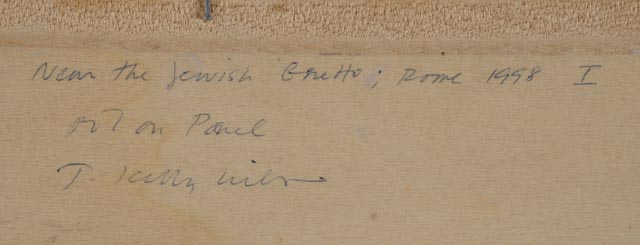 Near the Jewish Ghetto; Rome 1998 I
oil on Panel
T. Kelly Wilson